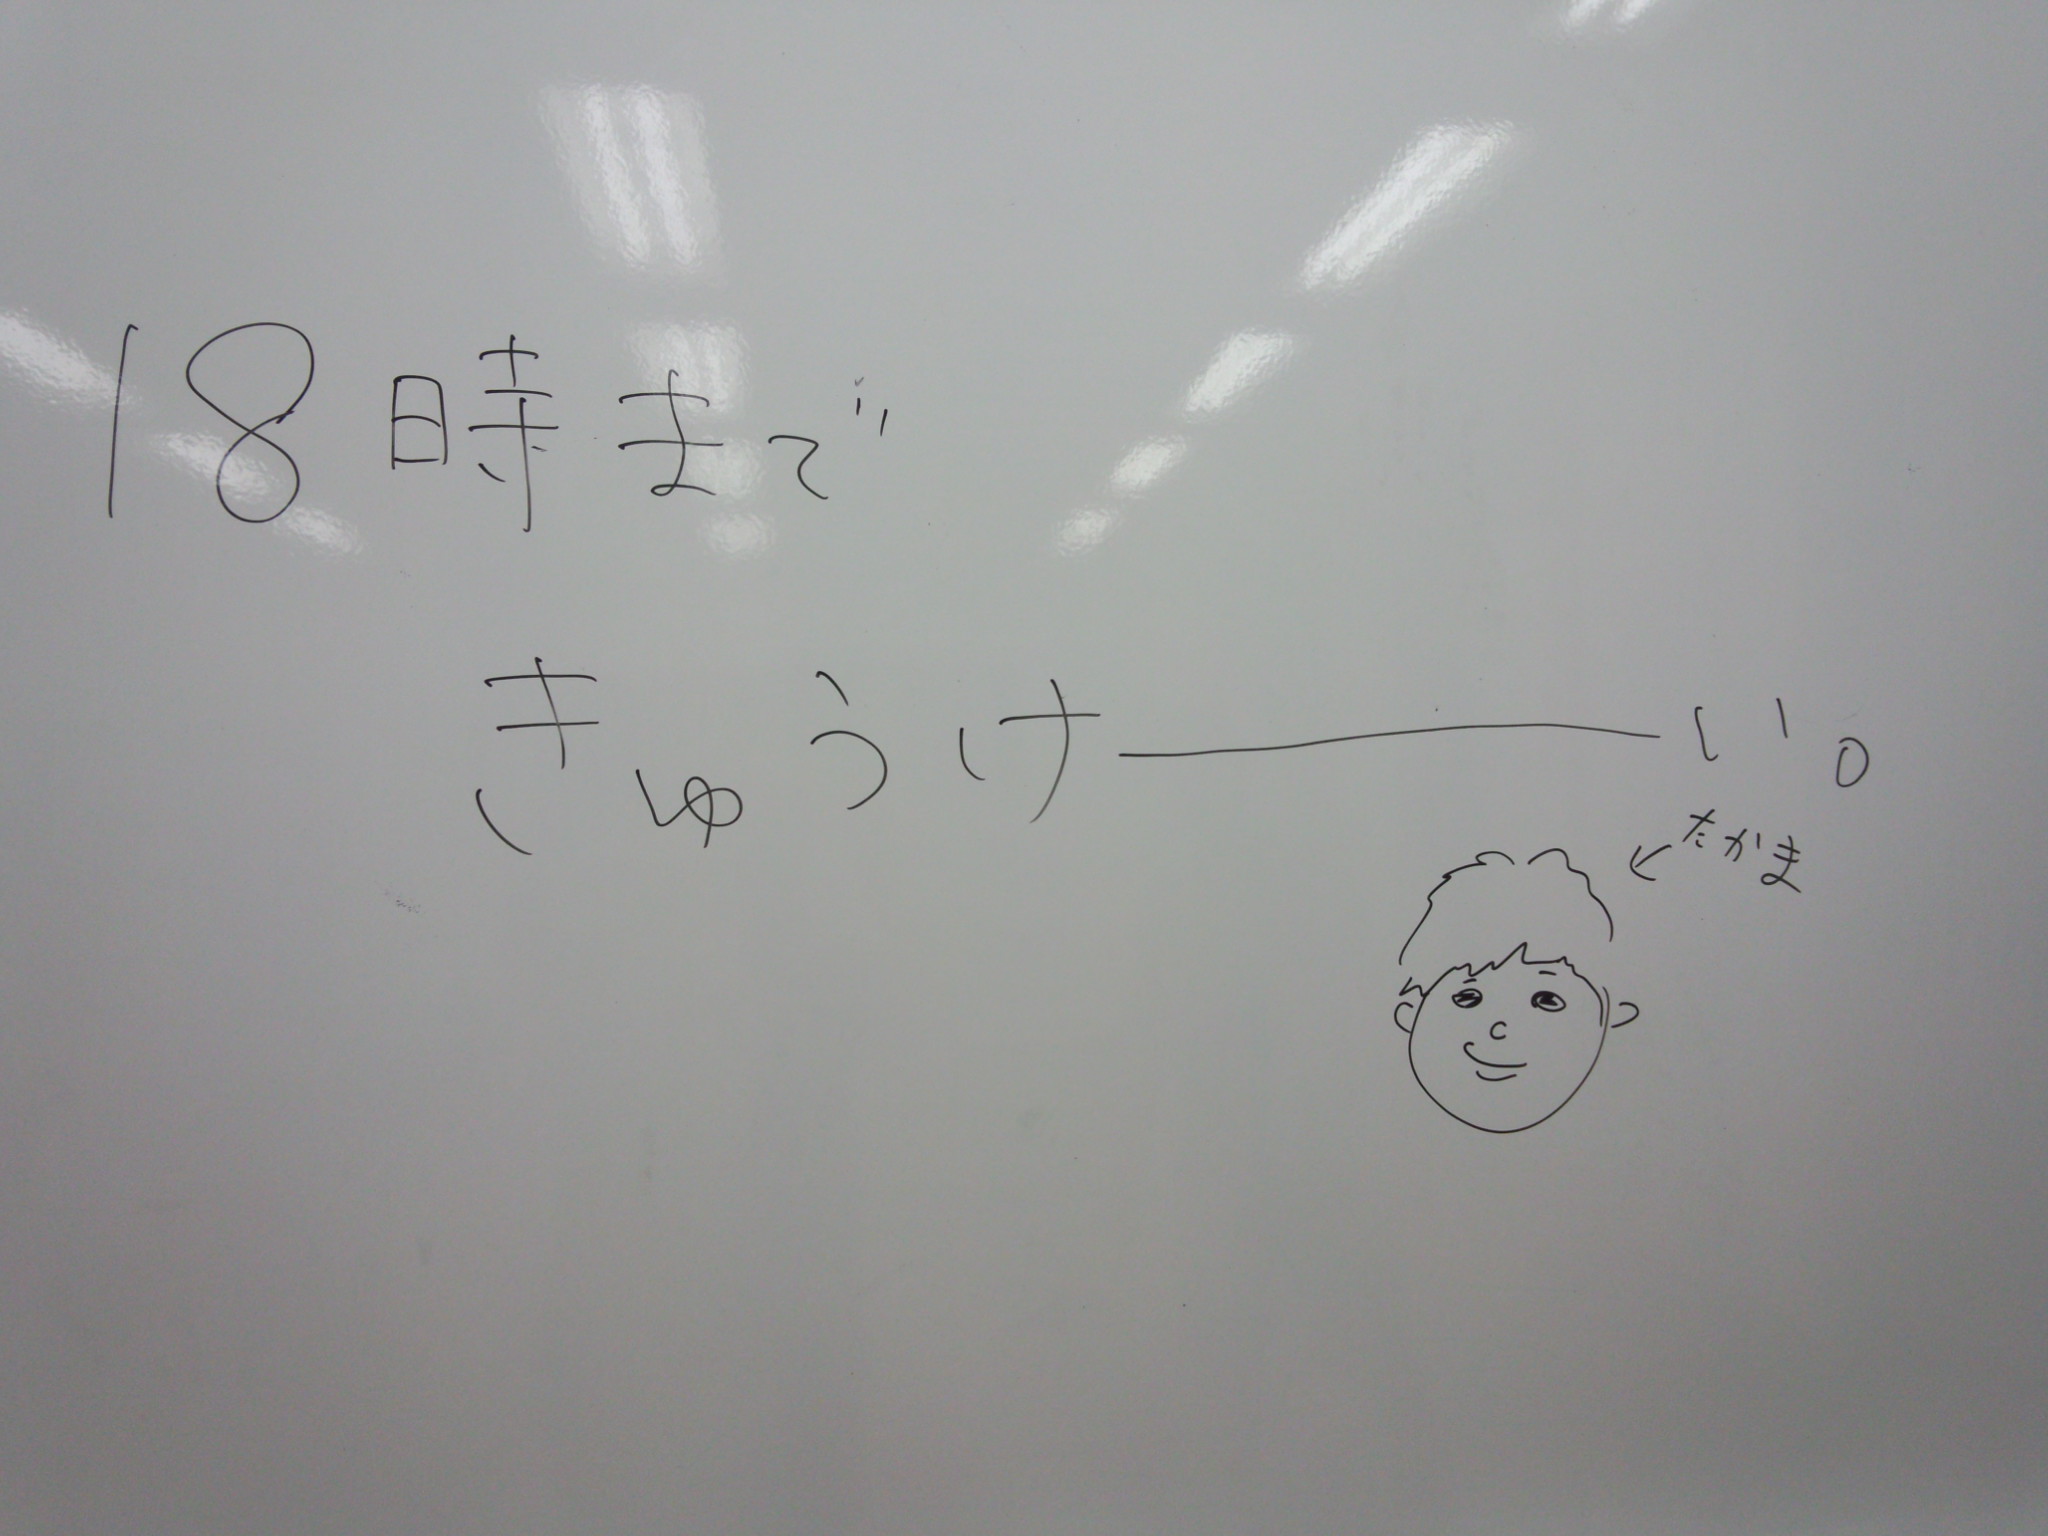 18時まで
きゅうけーい。
←たかま